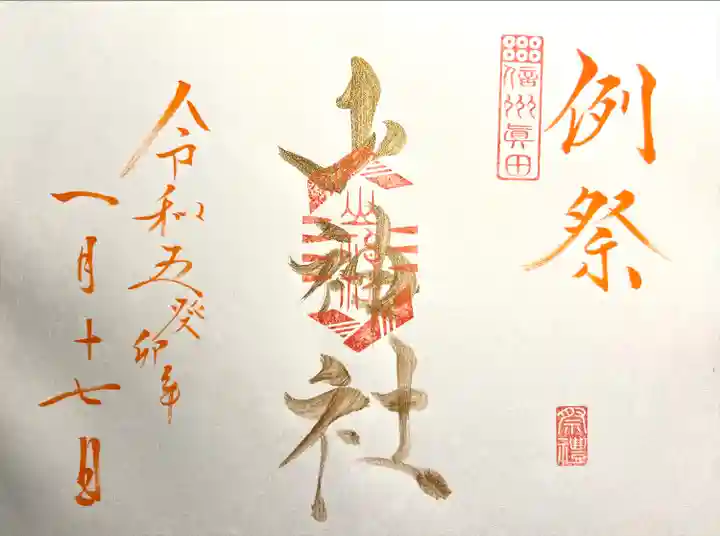 例祭
信州眞田
祭禮
山神社
山神社
令和五癸卯年
一月十七日